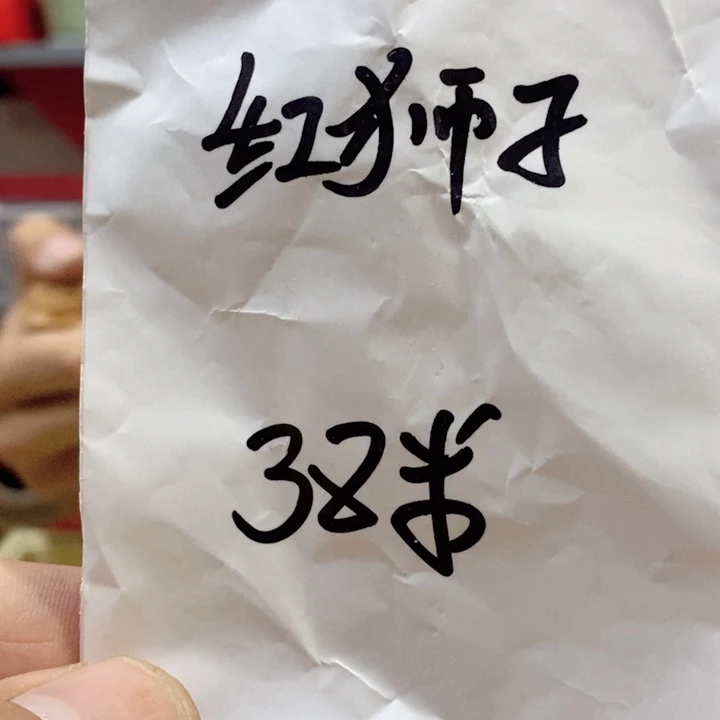 红狮子
38半